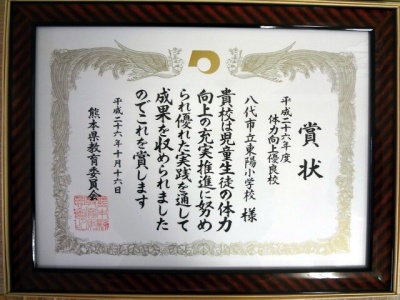 賞状
平成二十六年度
体力向上優良校
八代市立東陽小学校 様
貴校は児童生徒の体力
向上の充実推進に努め
られ優れた実践を通して
成果を収められました
のでこれを賞します
平成二十六年十月十六日
熊本県教育委員会